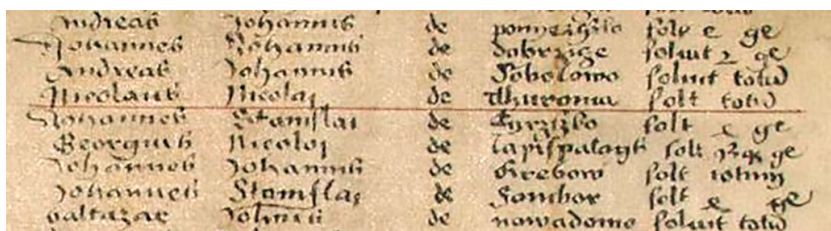 Andreas Johannis de solt ge
Johannes Johannis de soluit ge
Andreas Johannis de Sobolowo soluit totu
Nicolaus Nicolai de Thuronia solt totu
Johannes Stanislai de solt ge
Georgius Nicolai de solt ge
Johannes Johannis de Grebow solt totum
Johannes Stanislai de Sambor solt ge
baltazar de nowadomo soluit totu